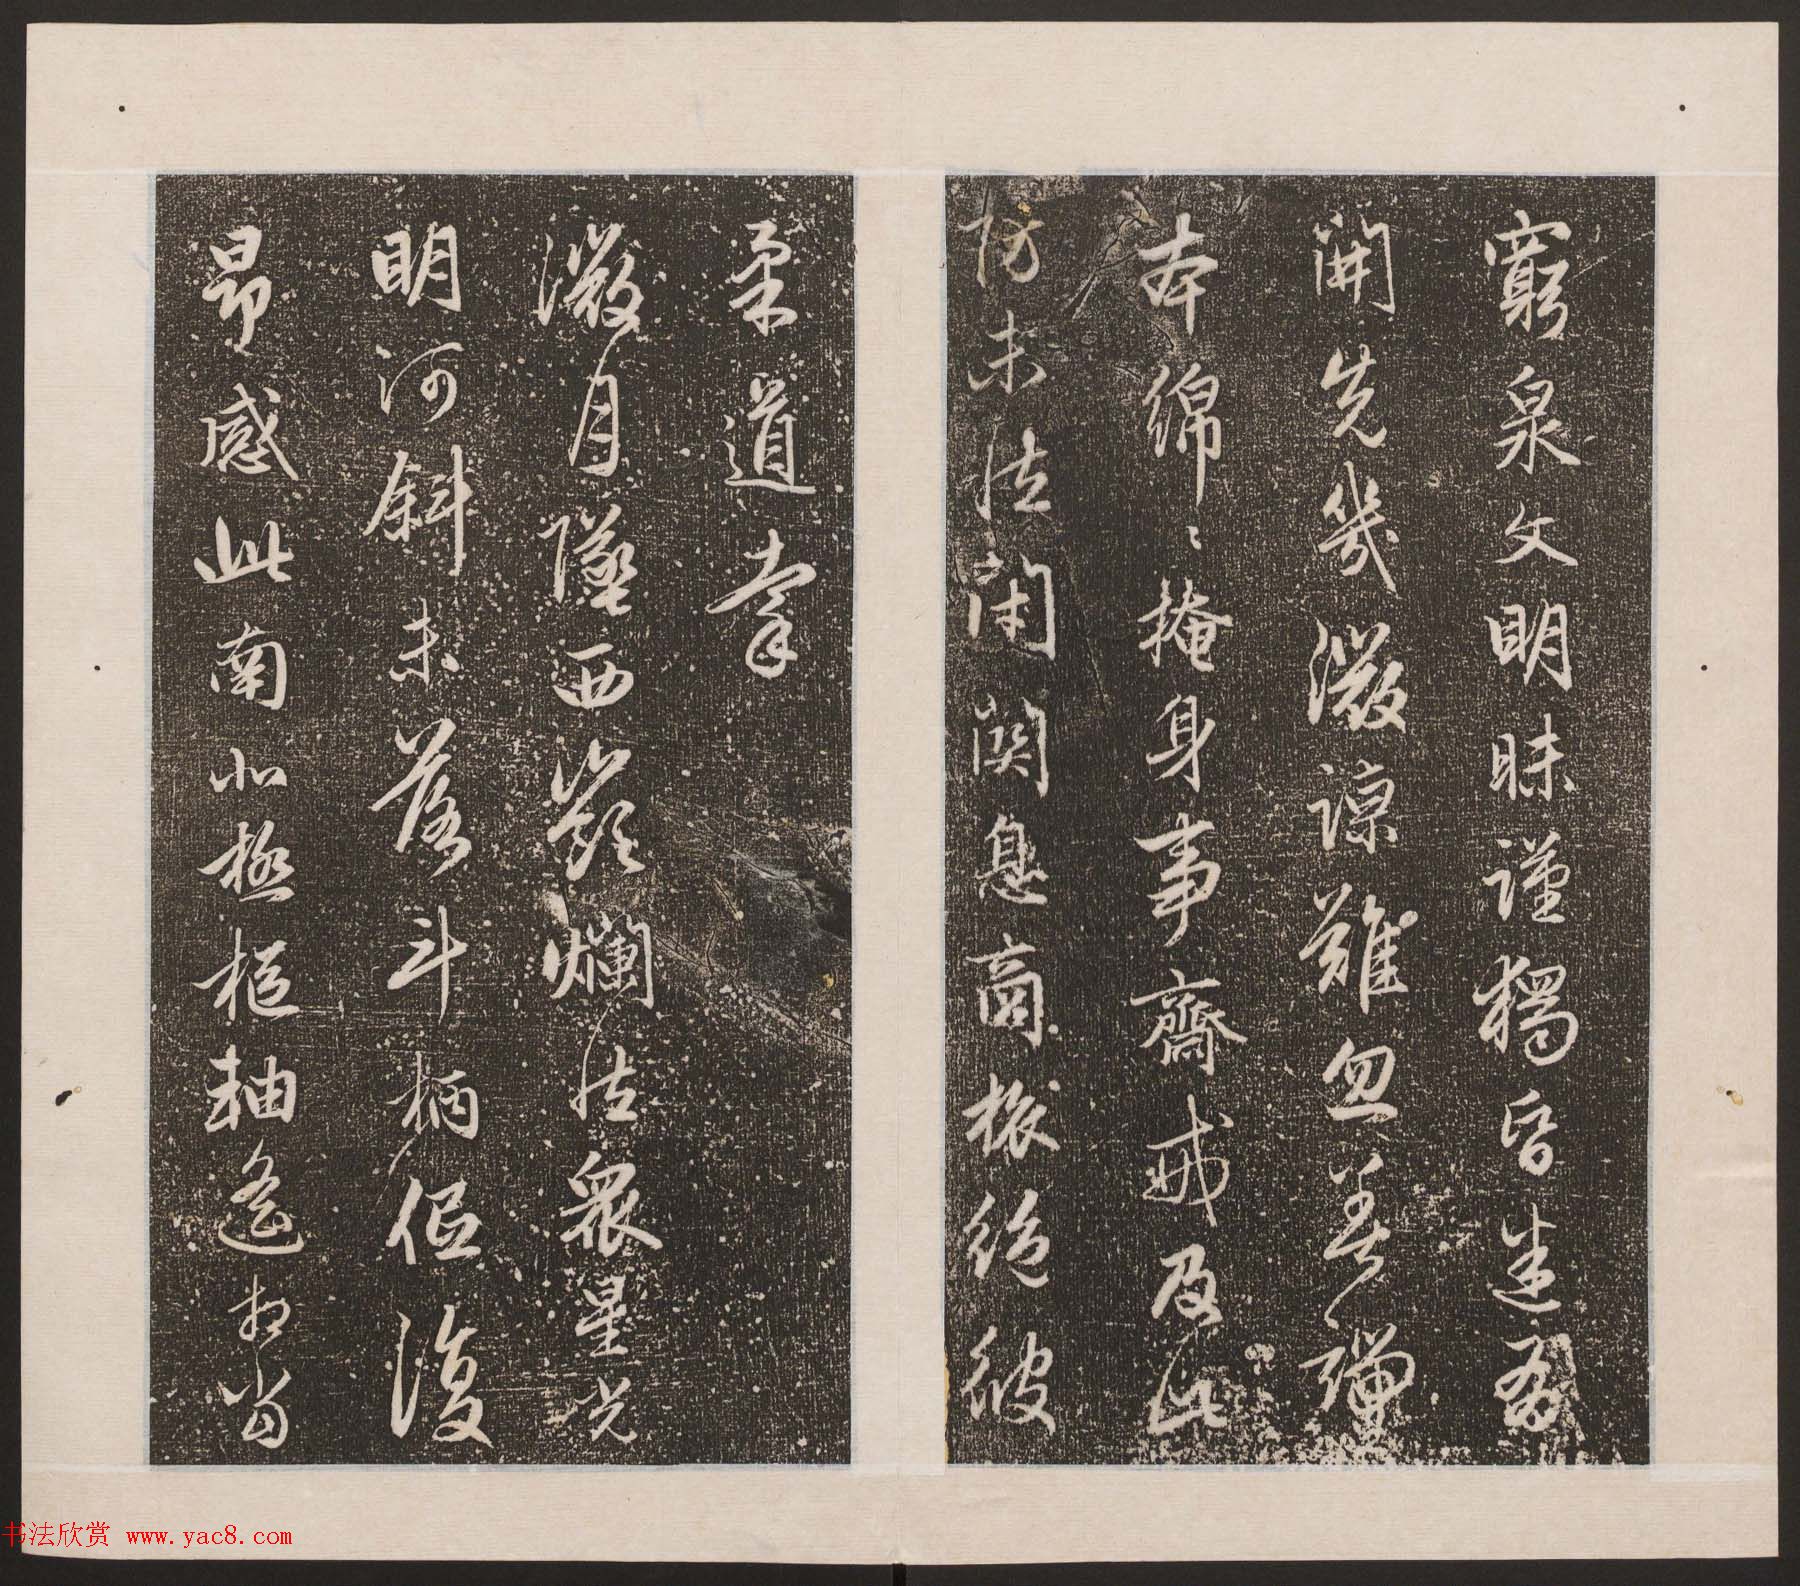 窮泉文明昧謹獨昏迷吾
開先幾微諒難忽善端
本綿綿掩身事齋戒及此
防未然閉關息商旅絕彼
柔道牽
微月墮西嶺爛然衆星光
明河斜未落斗柄低復
昂感此南北極樞軸遙相當
书法欣赏 www.yac8.com